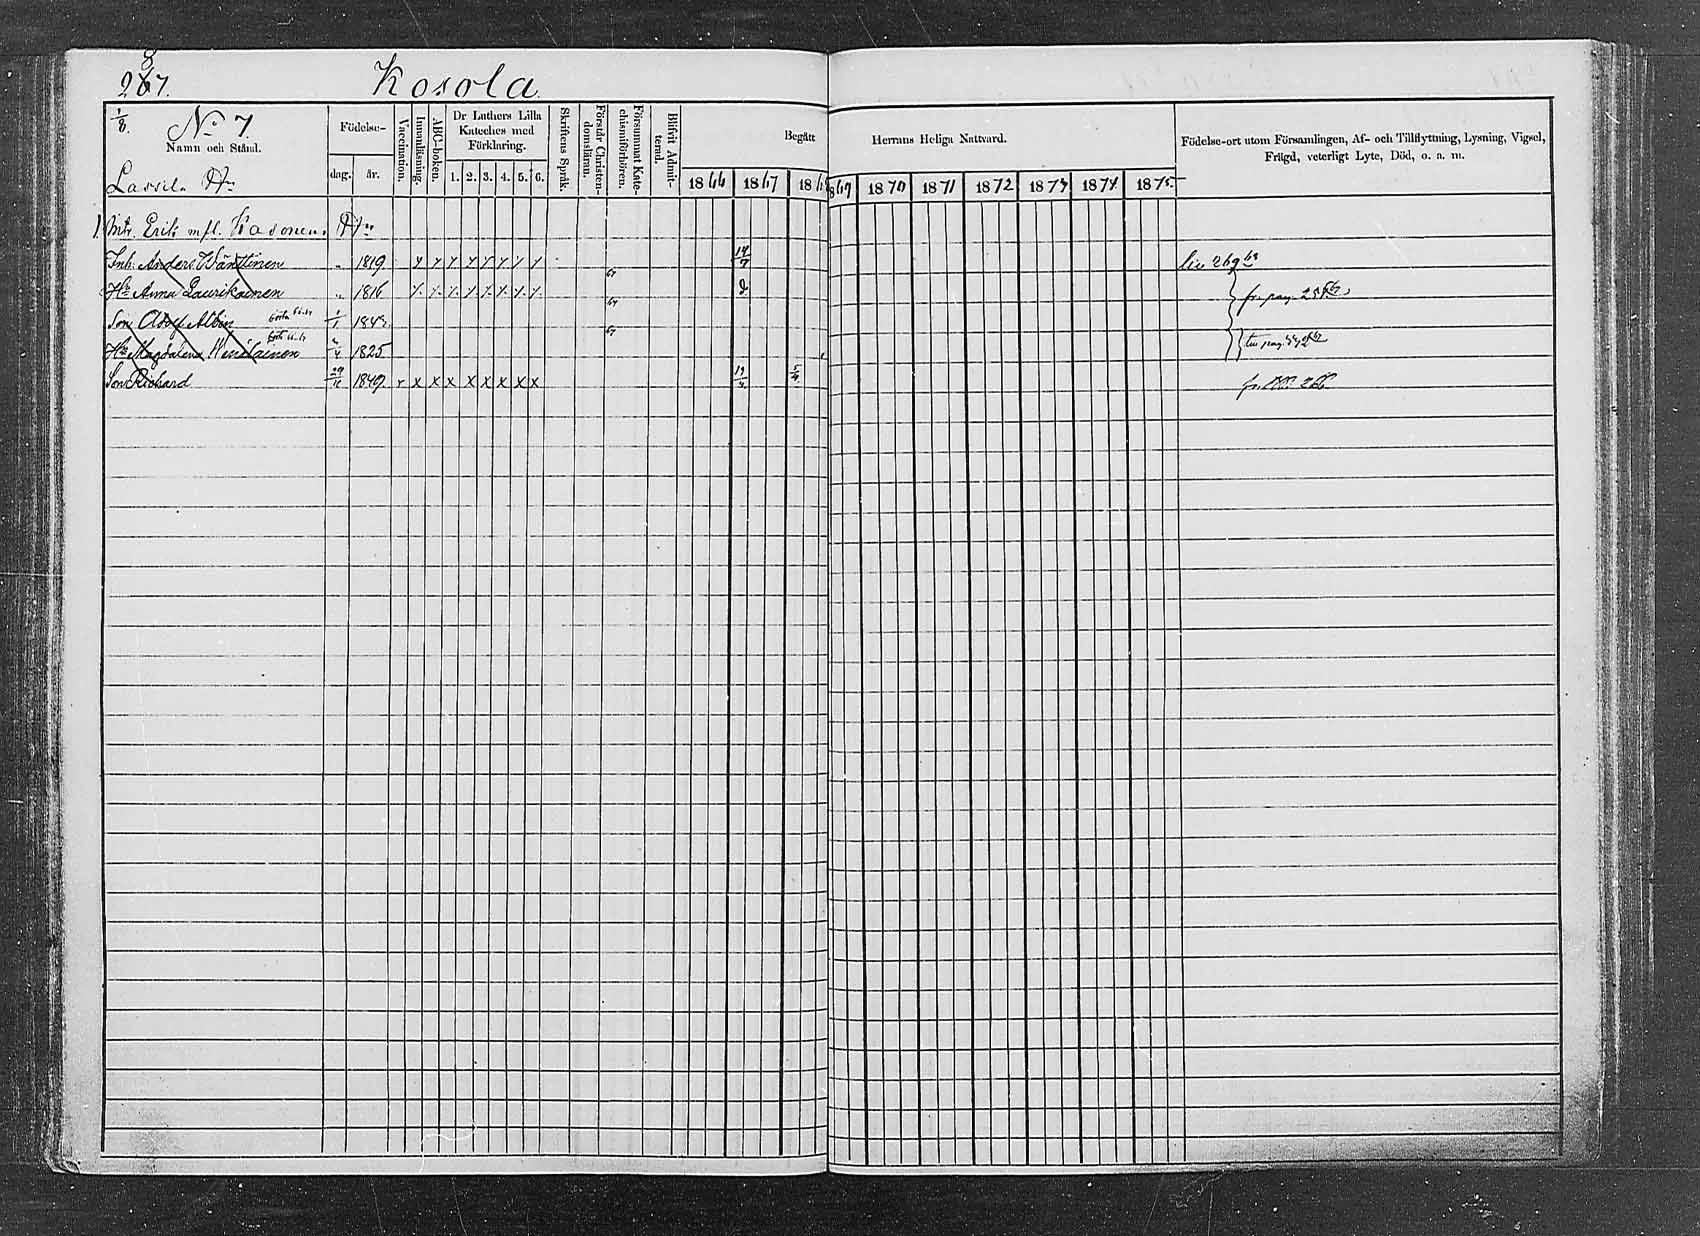 287.
Kosola
1/8.
No 7.
Namn och Stånd.
Födelse-
dag. år.
Vaccination.
Innanläsning.
ABC-boken.
Dr Luthers Lilla
Kateches med
Förklaring.
1. 2. 3. 4. 5. 6.
Skriftens Språk.
Förstår Christen-
domsläran.
Försummat Kate-
chismiförhören.
Blifvit Admit-
terad.
Begått Herrans Heliga Nattvard.
1866 1867 186 1869 1870 1871 1872 1873 1874 1875
Födelse-ort utom Församlingen, Af- och Tillflyttning, Lysning, Vigsel,
Frägd, veterligt Lyte, Död, o. a. m.
Lassila
1. Erik Kasonen
Inh. Anders 1819 x x x x x x x x 14/7 269
67
Hu Anna Laurikainen 1816 x x x x x x x x fr. pag.
67
Son Adolf Albin 1/1 1843
67
Hu Magdalena 1825 pag.
Son Richard 1849 x x x x x x x x x fr. 266